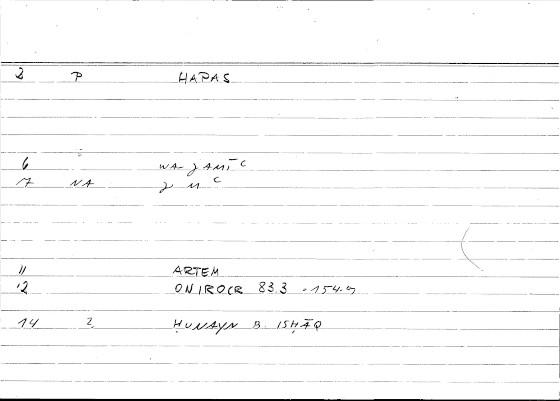 3 P HAPAS
6 WA-ǦAMĪʿ
7 NA ǦMʿ
11 ARTEM
12 ONIROCR 83.3 -154.9
14 2 ḤUNAYN B. ISḤĀQ